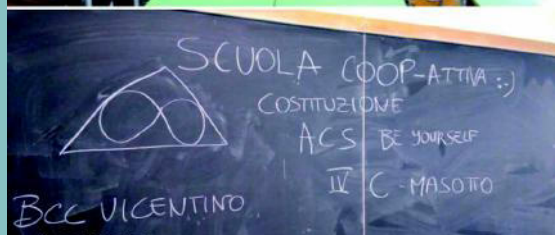 SCUOLA COOP-ATTIVA :)
COSTITUZIONE
ACS BE YOURSELF
IV C - MASOTTO
BCC VICENTINO